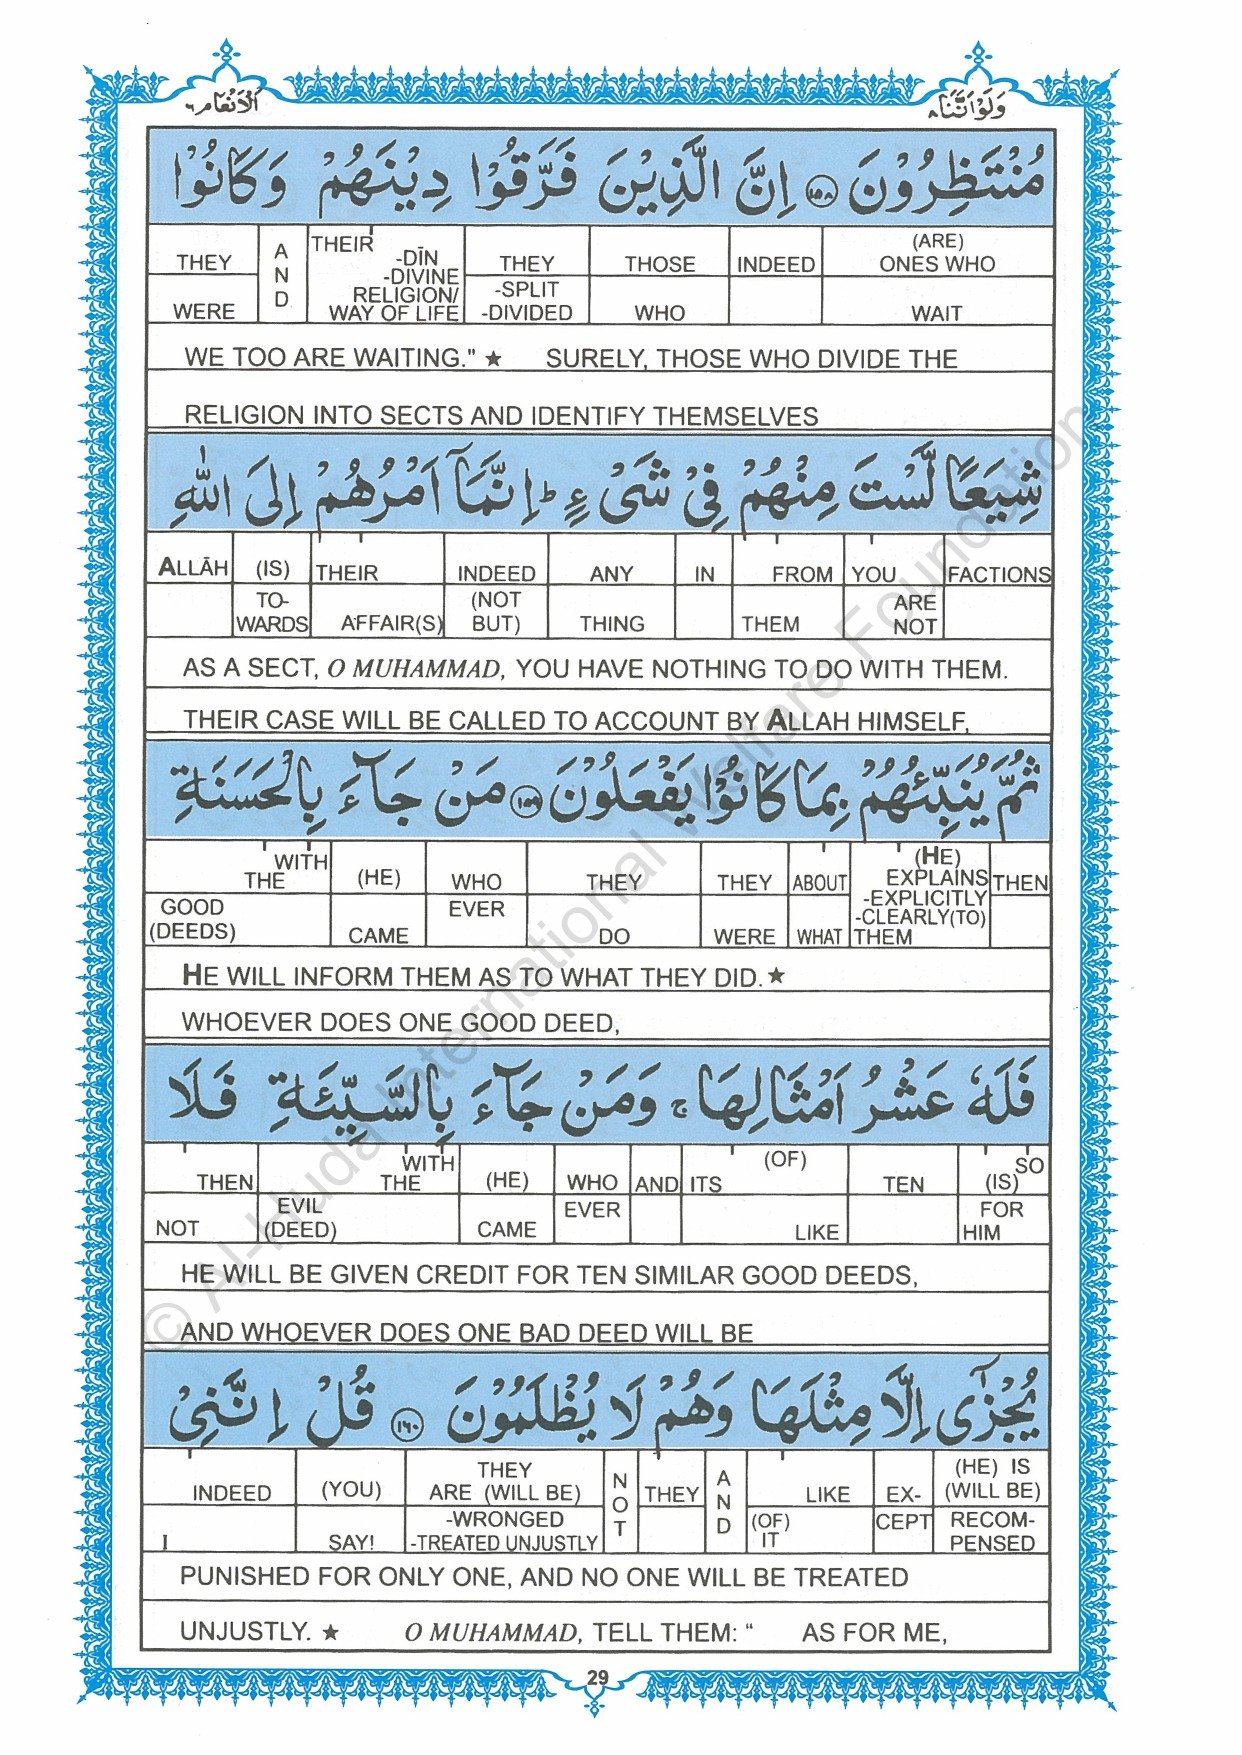 وَلَوْ اَنَّنَا ٨ اَلْاَنْعَام ٦
مُنْتَظِرُوْنَ ١٥٨ اِنَّ الَّذِيْنَ فَرَّقُوْا دِيْنَهُمْ وَكَانُوْا
THEY WERE AND THEIR -DĪN -DIVINE RELIGION/ WAY OF LIFE THEY -SPLIT -DIVIDED THOSE WHO INDEED (ARE) ONES WHO WAIT
WE TOO ARE WAITING." ★ SURELY, THOSE WHO DIVIDE THE
RELIGION INTO SECTS AND IDENTIFY THEMSELVES
شِيَعًا لَّسْتَ مِنْهُمْ فِيْ شَيْءٍ ط اِنَّمَآ اَمْرُهُمْ اِلَى اللّٰهِ
ALLĀH (IS) TO- WARDS THEIR AFFAIR(S) INDEED (NOT BUT) ANY THING IN FROM THEM YOU ARE NOT FACTIONS
AS A SECT, O MUHAMMAD, YOU HAVE NOTHING TO DO WITH THEM.
THEIR CASE WILL BE CALLED TO ACCOUNT BY ALLAH HIMSELF,
ثُمَّ يُنَبِّئُهُمْ بِمَا كَانُوْا يَفْعَلُوْنَ ١٥٩ مَنْ جَآءَ بِالْحَسَنَةِ
WITH THE GOOD (DEEDS) (HE) CAME WHO EVER THEY DO THEY WERE ABOUT WHAT (HE) EXPLAINS -EXPLICITLY -CLEARLY(TO) THEM THEN
HE WILL INFORM THEM AS TO WHAT THEY DID. ★
WHOEVER DOES ONE GOOD DEED,
فَلَهٗ عَشْرُ اَمْثَالِهَا ج وَمَنْ جَآءَ بِالسَّيِّئَةِ فَلَا
THEN NOT WITH THE EVIL (DEED) (HE) CAME WHO EVER AND ITS (OF) LIKE TEN SO (IS) FOR HIM
HE WILL BE GIVEN CREDIT FOR TEN SIMILAR GOOD DEEDS,
AND WHOEVER DOES ONE BAD DEED WILL BE
يُجْزٰٓى اِلَّا مِثْلَهَا وَهُمْ لَا يُظْلَمُوْنَ ١٦٠ قُلْ اِنَّنِيْ
INDEED I (YOU) SAY! THEY ARE (WILL BE) -WRONGED -TREATED UNJUSTLY NOT THEY AND LIKE (OF) IT EX- CEPT (HE) IS (WILL BE) RECOM- PENSED
PUNISHED FOR ONLY ONE, AND NO ONE WILL BE TREATED
UNJUSTLY. ★ O MUHAMMAD, TELL THEM: “ AS FOR ME,
29
© Al-Huda International Welfare Foundation